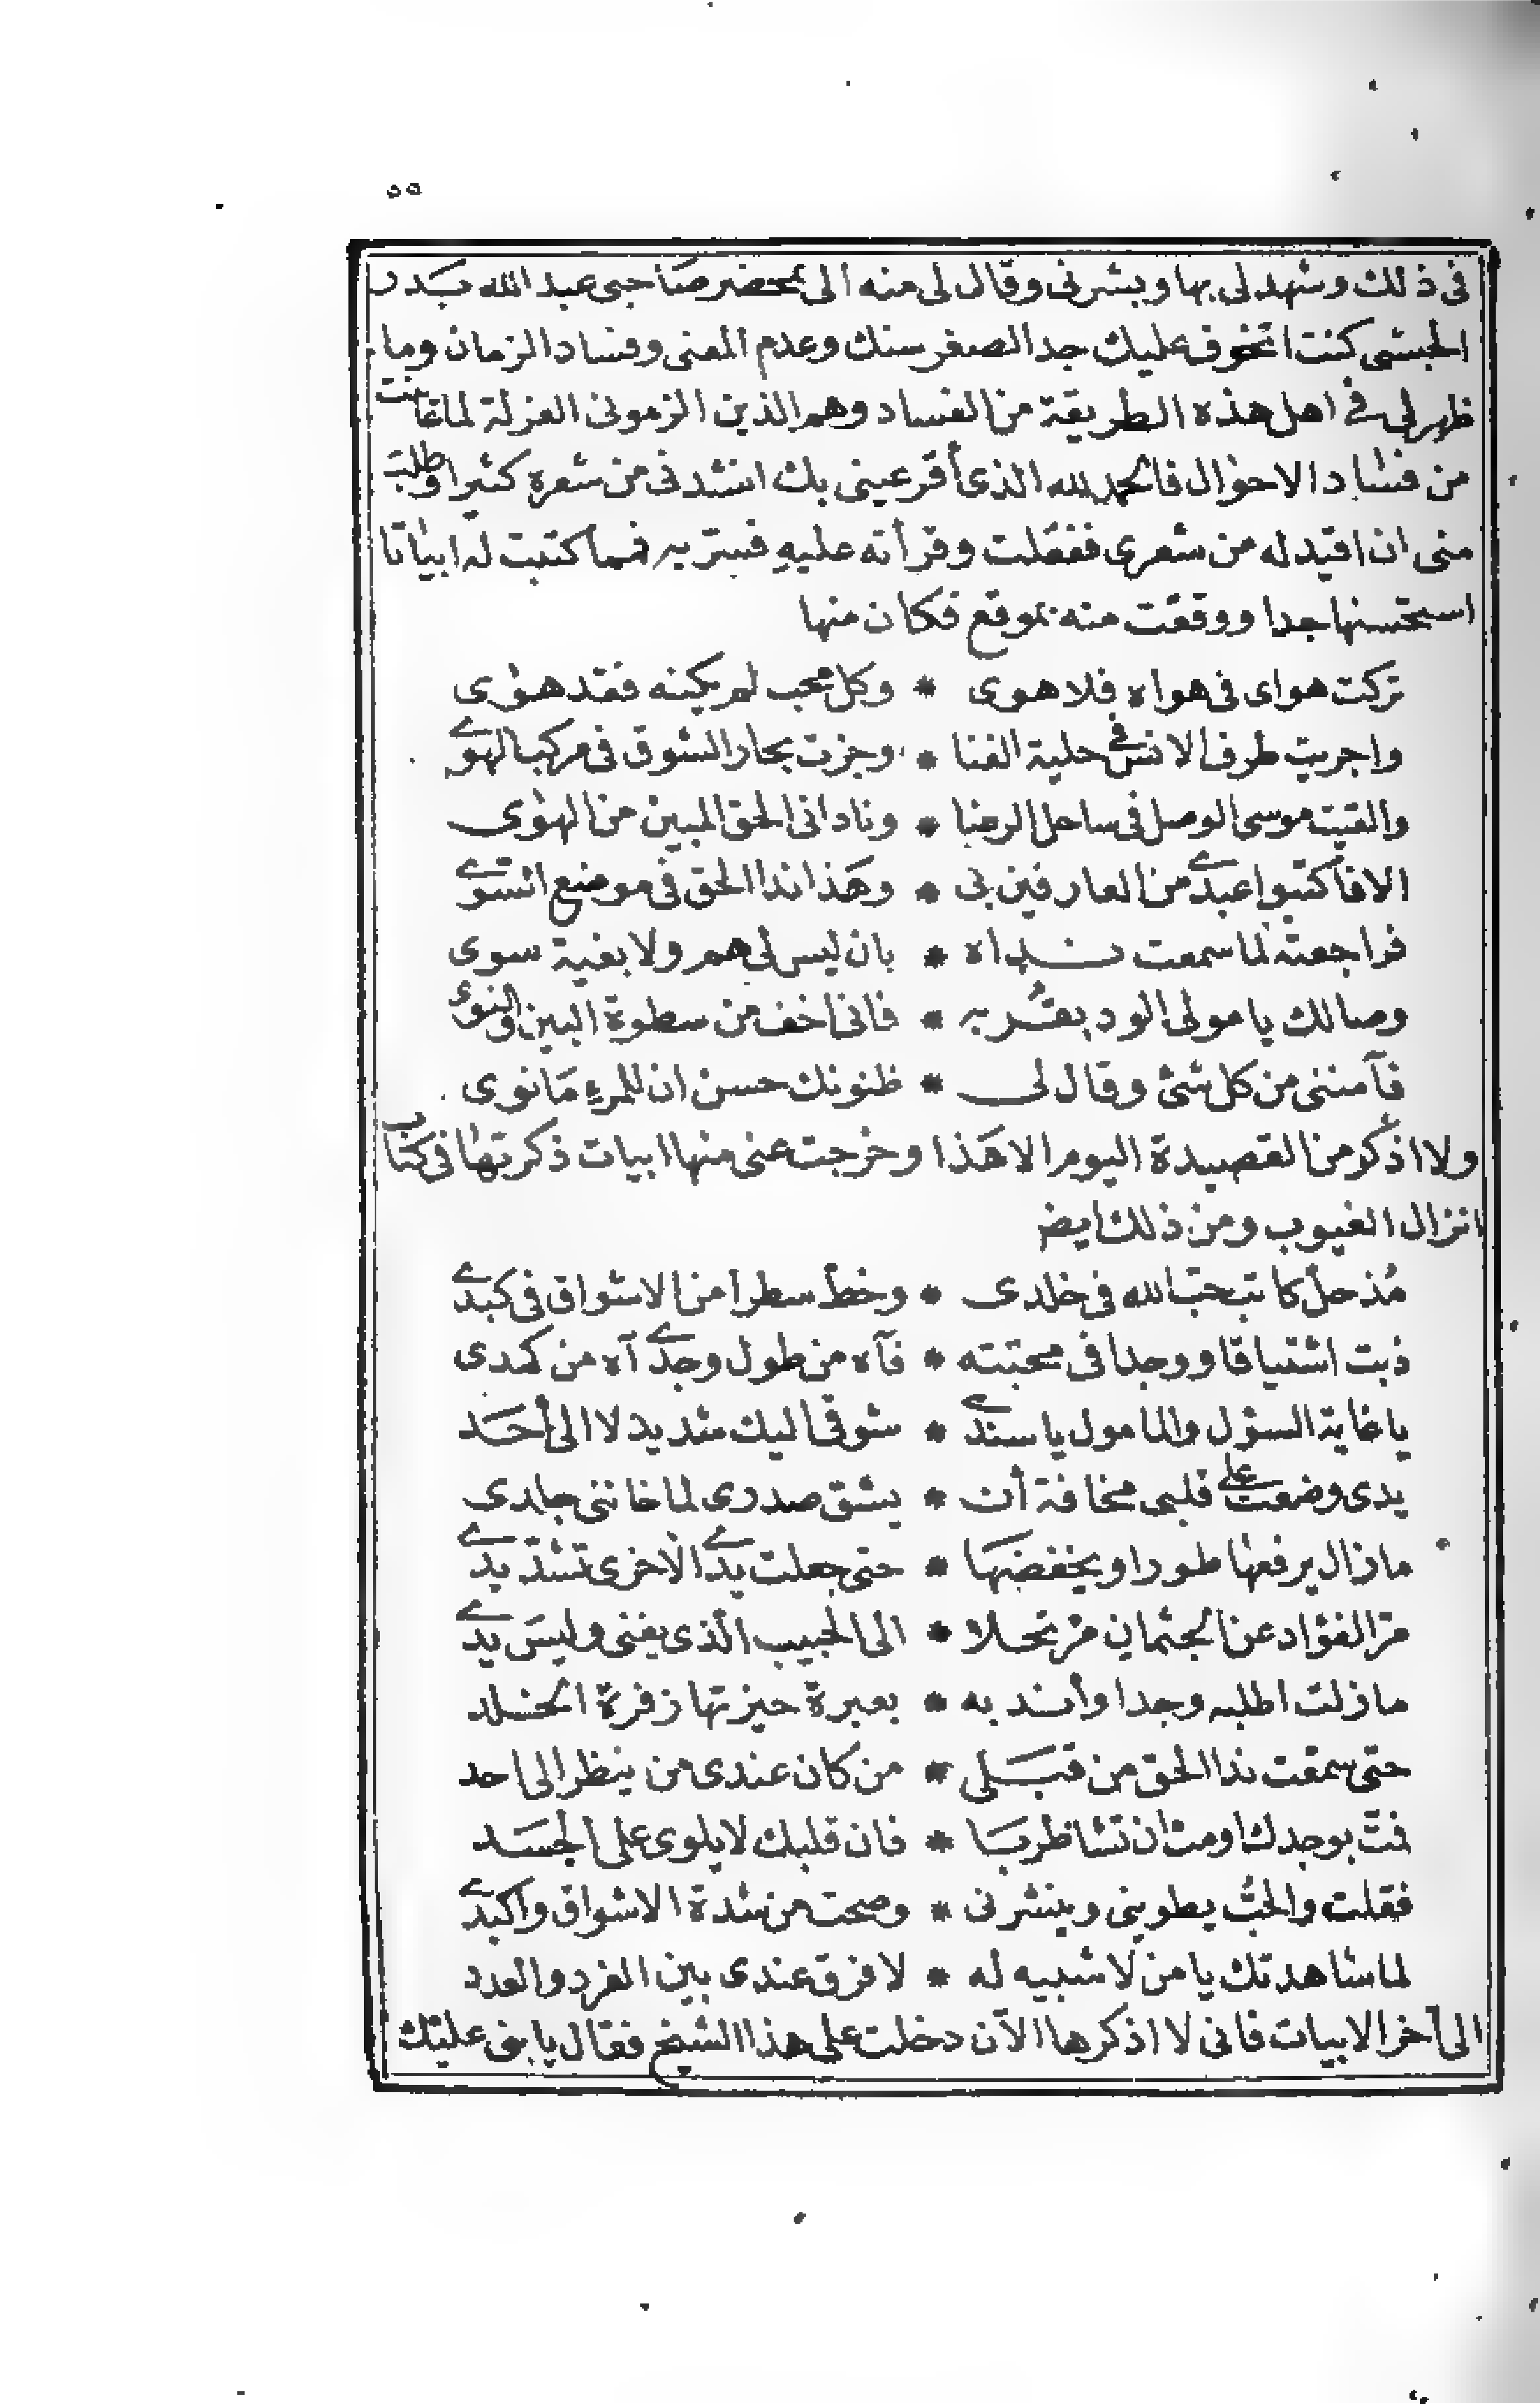 ٥٥
فى ذلك وشهد لى بها وبشرنى وقال لى منه الى بمحضر صاحبى عبد الله بدر
الحبشى كنت اتخوف عليك جدا لصغر سنك وعدم المعنى وفساد الزمان وما
ظهر لى فى اهل هذه الطريقة من الفساد وهم الذين الزمونى العزلة لما عاينت
من فساد الاحوال فالحمد لله الذى أقر عينى بك انشدنى من شعره كثيرا وطلب
منى ان اقيد له من شعرى ففعلت وقرأته عليه فسر به فمما كتبت له ابياتا
استحسنها جدا ووقعت منه بموقع فكان منها
تركت هواى فى هواه فلا هوى * وكل محب لم يكنه فقد هوى
واجريت طرف الانس فى حلية الفنا * وجزت بحار الشوق فى مركب الهوى
والقيت موسى الوصل فى ساحل الرضا * ونادانى الحق المبين من الهوى
الا فاكتبوا عبدى من العارفين بى * وهذا ندا الحق فى موضع استوى
فراجعته لما سمعت نداه * بان ليس لى هم ولا بغية سوى
وصالك يا مولى الود بقربه * فانى اخف من سطوة البين والنوى
فآمننى من كل شئ وقال لى * ظنونك حسن ان للمرء ما نوى
ولا اذكر من القصيدة اليوم الا هذا وخرجت عنى منها ابيات ذكرتها فى كتاب
انزال الغيوب ومن ذلك ايض
مذ حل كاتب حب الله فى خلدى * وخط سطرا من الاشواق فى كبدى
ذبت اشتياقا ووجدا فى محبته * فآه من طول وجدى آه من كمدى
يا غاية السؤل والمامول يا سندى * شوقى اليك شديد لا الى أحد
يدى وضعت على قلبى مخافة أن * يشق صدرى لما خاننى جلدى
ما زال يرفعها طورا ويخفضها * حتى جعلت يدى الاخرى تشد يدى
مر الفؤاد عن الجثمان مرتحلا * الى الحبيب الذى يفنى وليس يدى
ما زلت اطلبه وجدا وأندبه * بعبرة حيرتها زفرة الخلد
حتى سمعت ندا الحق من قبلى * من كان عندى من ينظر الى احد
فمت بوجدك او مت ان تشا طربا * فان قلبك لا يلوى على الجسد
فقلت والحب يطوينى وينشرنى * وصحت من شدة الاشواق واكبدى
لما شاهدتك يا من لا شبيه له * لا فرق عندى بين الفرد والعدد
الى آخر الابيات فانى لا اذكرها الآن دخلت على هذا الشيخ فقال يا بنى عليك